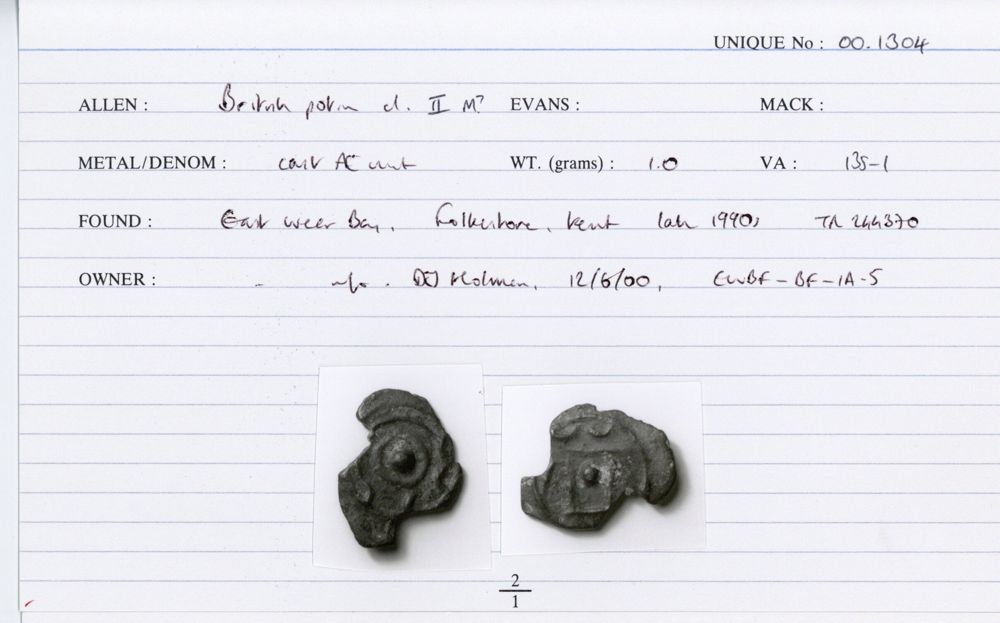 UNIQUE No : 00.1304
ALLEN : British potin cl. II M? EVANS : MACK :
METAL/DENOM : cast Æ unit WT. (grams) : 1.0 VA : 135-1
FOUND : East Wear Bay, Folkestone, Kent late 1990s TR 244370
OWNER : - info. DJ Holman, 12/6/00, EWBF-BF-IA-5
2
1